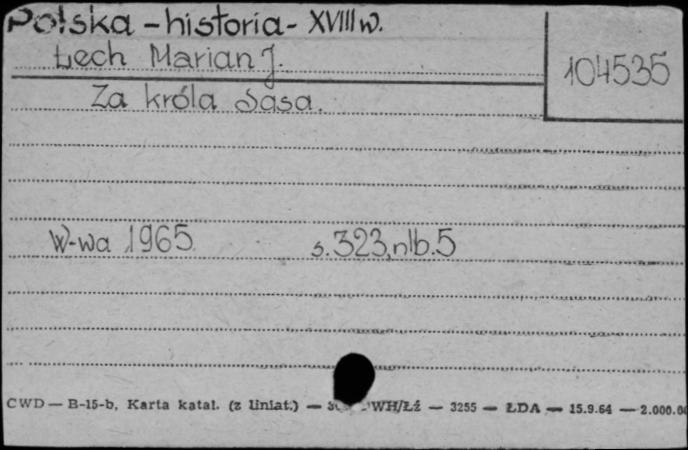 Polska - historia - XVIII w.
Łech Marian J.
104535
Za króla Sasa.
W-wa 1965 s. 323, nlb. 5
CWD — B-15-b, Karta katal. (z liniat.) — WH/Łź — 3255 — ŁDA — 15.9.64 — 2.000.0